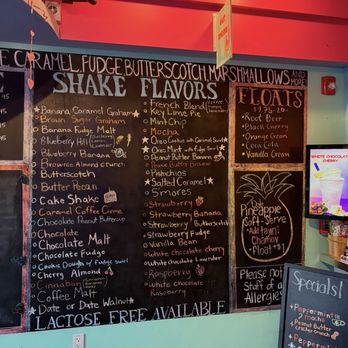 CARAMEL, FUDGE, BUTTERSCOTCH, MARSHMALLOWS AND MORE
SHAKE FLAVORS
Banana Caramel Graham
Brown Sugar Graham
Banana Fudge Malt
Blueberry Hill
Blueberry Banana
Brownie
Butterscotch
Butter Pecan
Cake Shake
Caramel Coffee
Chocolate Peanut Butter
Chocolate
Chocolate Malt
Chocolate Fudge
Cookie Dough w/ Fudge swirl
Cherry Almond
Cinnaban
Coffee Malt
Date or Date Walnut
French Blend
Key Lime Pie
Mint Chip
Mocha
Oreo
Oreo Mint w/ Edge
Peanut Butter Banana
Peanut Butter Brownie
Pistachios
Salted Caramel
S'mores
Strawberry
Strawberry Banana
Strawberry Butterscotch
Strawberry Fudge
Vanilla Bean
white chocolate cherry
white chocolate Lavender
Raspberry
white chocolate
Raspberry
LACTOSE FREE AVAILABLE
FLOATS
Root Beer
Black Cherry
Orange Cream
Coca Cola
Vanilla Cream
Pineapple
Soft-
Serve
Add tajin
Chamoy
Float +1
Please Notify
Staff of
Allergies
WHITE CHOCOLATE
CHERRY
Specials!
Peppermint
mocha
Peanut Butter